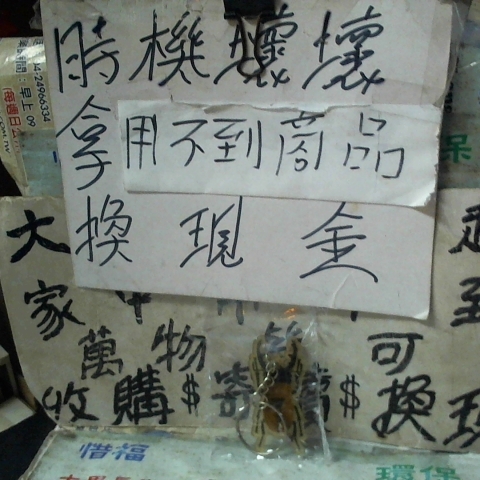 時機壞壞
拿用不到商品
換現金
24966334
早上09
大
家中
至
萬物 可
收購$寄賣$換現
惜福
環保